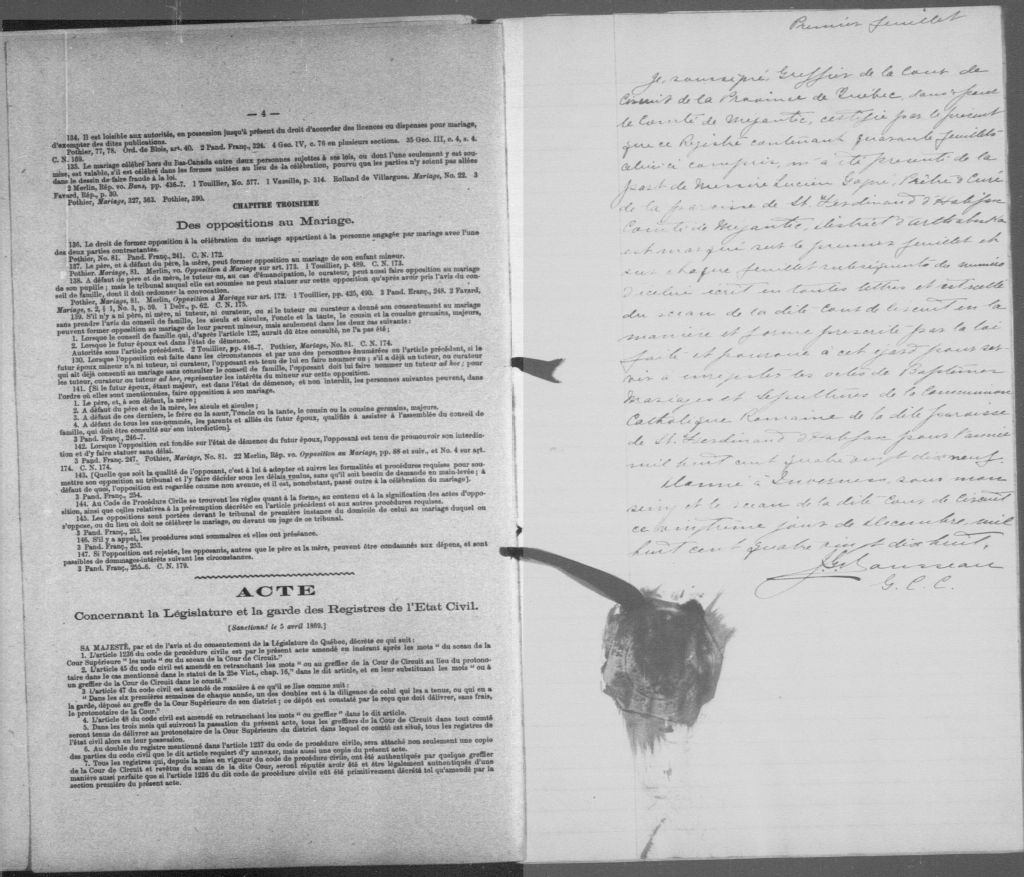 — 4 —
134. Il est loisible aux autorités, en possession jusqu'à présent du droit d'accorder des licences ou dispenses pour mariage,
d'exempter des dites publications.
Pothier, 77, 78. Ord. de Blois, art. 40. 2 Pand. Franç., 324. 4 Geo. IV, c. 76 en plusieurs sections. 35 Geo. III, c. 4, s. 4.
C. N. 169.
135. Le mariage célébré hors du Bas-Canada entre deux personnes sujettes à ses lois, ou dont l'une seulement y est sou-
mise, est valable, s'il est célébré dans les formes usitées au lieu de la célébration, pourvu que les parties n'y soient pas allées
dans le dessein de faire fraude à la loi.
2 Merlin, Rép. vo. Bans, pp. 436-7. 1 Touillier, No. 577. 1 Vazeille, p. 314. Rolland de Villargues, Mariage, No. 22. 3
Favard, Rép., p. 30.
Pothier, Mariage, 327, 363. Pothier, 390.
CHAPITRE TROISIEME
Des oppositions au Mariage.
136. Le droit de former opposition à la célébration du mariage appartient à la personne engagée par mariage avec l'une
des deux parties contractantes.
Pothier, No. 81. Pand. Franç., 241. C. N. 172.
137. Le père, et à défaut du père, la mère, peut former opposition au mariage de son enfant mineur.
Pothier, Mariage, 81. Merlin, vo. Opposition à Mariage sur art. 173. 1 Touillier, p. 489. C. N. 173.
138. A défaut de père et de mère, le tuteur ou, au cas d'émancipation, le curateur, peut aussi faire opposition au mariage
de son pupille; mais le tribunal auquel elle est soumise ne peut statuer sur cette opposition qu'après avoir pris l'avis du con-
seil de famille, dont il doit ordonner la convocation.
Pothier, Mariage, 81. Merlin, Opposition à Mariage sur art. 172. 1 Touillier, pp. 425, 490. 3 Pand. Franç., 248. 2 Favard,
Mariage, s. 2, § 1, No. 3, p. 59. 1 Delv., p. 62. C. N. 175.
139. S'il n'y a ni père, ni mère, ni tuteur, ni curateur, ou si le tuteur ou curateur a donné son consentement au mariage
sans prendre l'avis du conseil de famille, les aïeuls et aïeules, l'oncle et la tante, le cousin et la cousine germains, majeurs,
peuvent former opposition au mariage de leur parent mineur, mais seulement dans les deux cas suivants:
1. Lorsque le conseil de famille qui, d'après l'article 122, aurait dû être consulté, ne l'a pas été;
2. Lorsque le futur époux est dans l'état de démence.
Autorités sous l'article précédent. 2 Touillier, pp. 416-7. Pothier, Mariage, No. 81. C. N. 174.
130. Lorsque l'opposition est faite dans les circonstances et par une des personnes énumérées en l'article précédent, si le
futur époux mineur n'a ni tuteur, ni curateur, l'opposant est tenu de lui en faire nommer un; s'il a déjà un tuteur, ou curateur
qui ait déjà consenti au mariage sans consulter le conseil de famille, l'opposant doit lui faire nommer un tuteur ad hoc; pour
les tuteur, curateur ou tuteur ad hoc, représenter les intérêts du mineur sur cette opposition.
141. [Si le futur époux, étant majeur, est dans l'état de démence, et non interdit, les personnes suivantes peuvent, dans
l'ordre où elles sont mentionnées, faire opposition à son mariage.
1. Le père, et, à son défaut, la mère;
2. A défaut du père et de la mère, les aïeuls et aïeules;
3. A défaut de ces derniers, le frère ou la sœur, l'oncle ou la tante, le cousin ou la cousine germains, majeurs.
4. A défaut de tous les sus-nommés, les parents et alliés du futur époux, qualifiés à assister à l'assemblée du conseil de
famille, qui doit être consulté sur son interdiction].
3 Pand. Franç., 246-7.
142. Lorsque l'opposition est fondée sur l'état de démence du futur époux, l'opposant est tenu de promouvoir son interdic-
tion et d'y faire statuer sans délai.
3 Pand. Franç. 247. Pothier, Mariage, No. 81. 22 Merlin, Rép. vo. Opposition au Mariage, pp. 88 et suiv., et No. 4 sur art.
174. C. N. 174.
143. [Quelle que soit la qualité de l'opposant, c'est à lui à adopter et suivre les formalités et procédures requises pour sou-
mettre son opposition au tribunal et l'y faire décider sous les délais voulus, sans qu'il soit besoin de demande en main-levée; à
défaut de quoi, l'opposition est regardée comme non avenue, et il est, nonobstant, passé outre à la célébration du mariage].
3 Pand. Franç., 254.
144. Au Code de Procédure Civile se trouvent les règles quant à la forme, au contenu et à la signification des actes d'oppo-
sition, ainsi que celles relatives à la péremption décrétée en l'article précédent et aux autres procédures requises.
145. Les oppositions sont portées devant le tribunal de première instance du domicile de celui au mariage duquel on
s'oppose, ou du lieu où doit se célébrer le mariage, ou devant un juge de ce tribunal.
3 Pand. Franç., 253.
146. S'il y a appel, les procédures sont sommaires et elles ont préséance.
3 Pand. Franç., 253.
147. Si l'opposition est rejetée, les opposants, autres que le père et la mère, peuvent être condamnés aux dépens, et sont
passibles de dommages-intérêts suivant les circonstances.
3 Pand. Franç., 255-6. C. N. 179.
ACTE
Concernant la Législature et la garde des Registres de l'Etat Civil.
[Sanctionné le 5 avril 1869.]
SA MAJESTÉ, par et de l'avis et du consentement de la Législature de Québec, décrète ce qui suit:
1. L'article 1236 du code de procédure civile est par le présent acte amendé en insérant après les mots "du sceau de la
Cour Supérieure" les mots "ou du sceau de la Cour de Circuit."
2. L'article 45 du code civil est amendé en retranchant les mots "ou au greffier de la Cour de Circuit au lieu du protono-
taire dans le cas mentionné dans le statut de la 25e Vict., chap. 16," dans le dit article, et en leur substituant les mots "ou à
un greffier de la Cour de Circuit dans le comté."
3 L'article 47 du code civil est amendé de manière à ce qu'il se lise comme suit:
"Dans les six premières semaines de chaque année, un des doubles est à la diligence de celui qui les a tenus, ou qui en a
la garde, déposé au greffe de la Cour Supérieure de son district; ce dépôt est constaté par le reçu que doit délivrer, sans frais,
le protonotaire de la Cour."
4. L'article 48 du code civil est amendé en retranchant les mots "ou greffier" dans le dit article.
5. Dans les trois mois qui suivront la passation du présent acte, tous les greffiers de la Cour de Circuit dans tout comté
seront tenus de délivrer au protonotaire de la Cour Supérieure du district dans lequel ce comté est situé, tous les registres de
l'état civil alors en leur possession.
6. Au double du registre mentionné dans l'article 1237 du code de procédure civile, sera attaché non seulement une copie
des parties du code civil que le dit article requiert d'y annexer, mais aussi une copie du présent acte.
7. Tous les registres qui, depuis la mise en vigueur du code de procédure civile, ont été authentiqués par quelque greffier
de la Cour de Circuit et revêtus du sceau de la dite Cour, seront réputés avoir été et être légalement authentiqués d'une
manière aussi parfaite que si l'article 1236 du dit code de procédure civile eût été primitivement décrété tel qu'amendé par la
section première du présent acte.
Premier feuillet
Je, soussigné, Greffier de la Cour de
Circuit de la Province de Québec, dans & pour
le Comté de Mégantic, certifie par le présent
que ce Registre contenant quarante feuillets
celui ci compris, m'a été présenté de la
part de Messire Lucien Gagné, Prêtre & Curé
de la paroisse de St. Ferdinand d'Halifax
Comté de Mégantic, district d'Arthabaska
est marqué sur le premier feuillet et
sur chaque feuillet subséquent du numéro
d'icelui écrit en toutes lettres et est scellé
du sceau de la dite Cour de Circuit en la
manière et forme prescrite par la loi
faite et pourvue à cet égard pour ser-
vir à enregistrer les actes de Baptêmes
Mariages et Sépultures de la Communion
Catholique Romaine de la dite paroisse
de St. Ferdinand d'Halifax pour l'année
mil huit cent quatre vingt dix neuf.
Donné à Inverness, sous mon
seing et le sceau de la dite Cour de Circuit
ce septième jour de Décembre, mil
huit cent quatre vingt dix huit,
Rousseau
G. C. C.